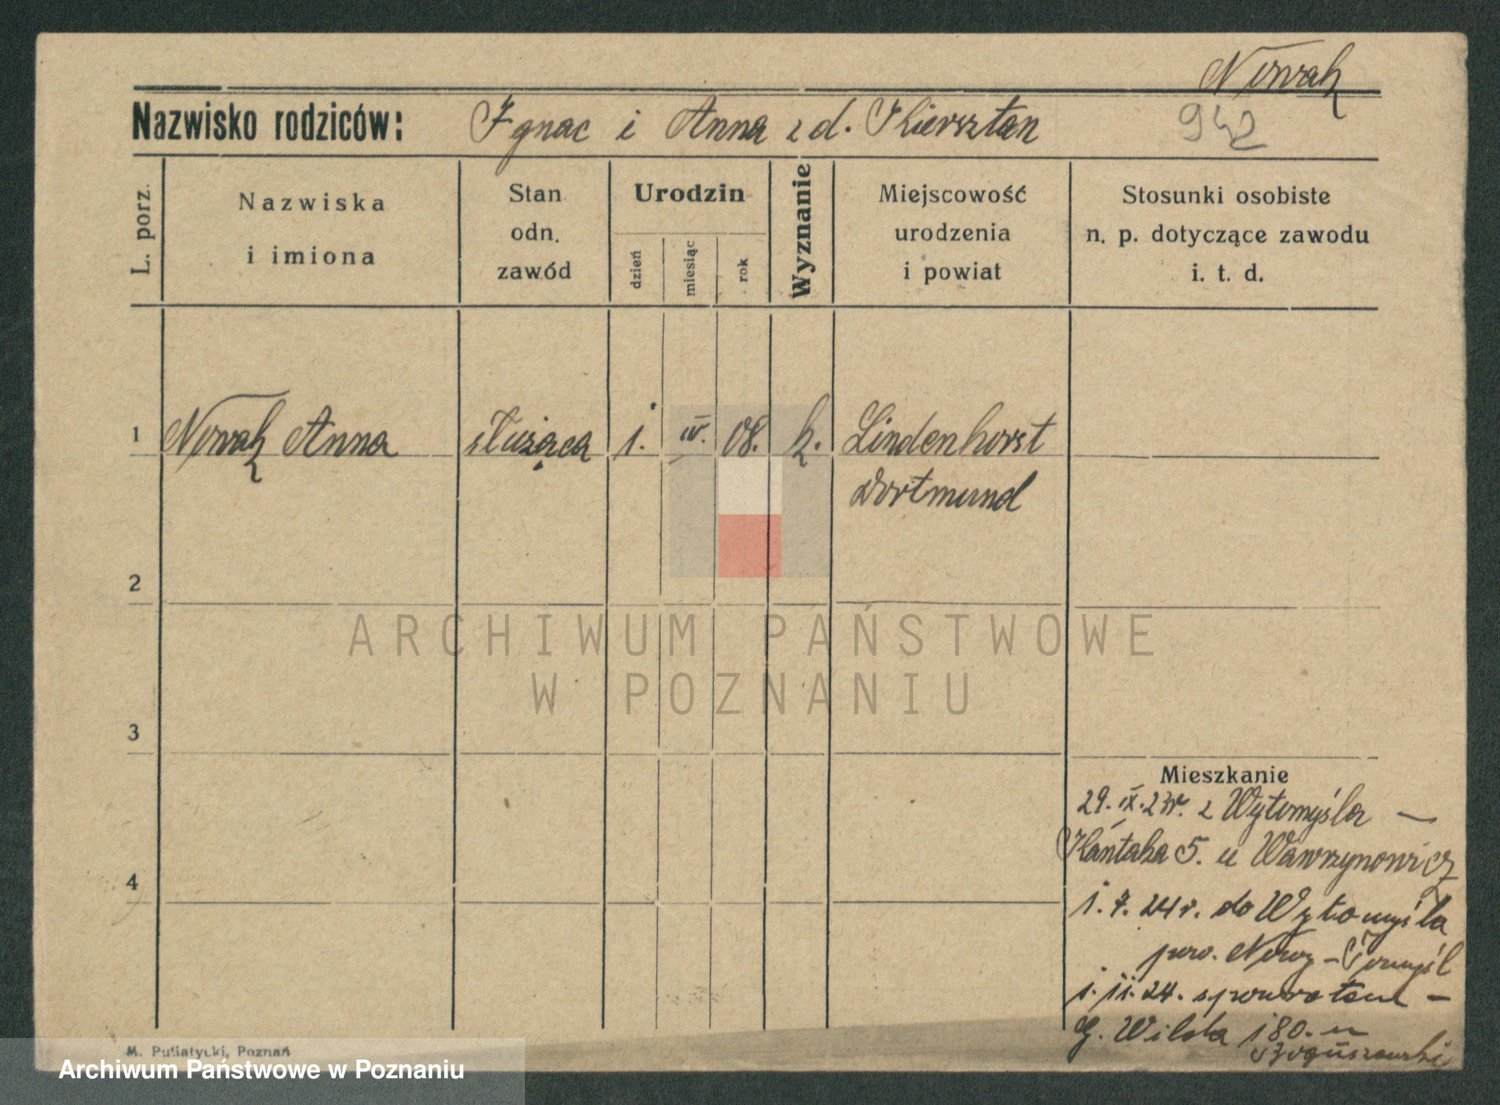 Nowak
Nazwisko rodziców: Ignac i Anna z d. Kiersztan
942
L. porz.
Nazwiska
i imiona
Stan
odn.
zawód
Urodzin
dzień
miesiąc
rok
Wyznanie
Miejscowość
urodzenia
i powiat
Stosunki osobiste
n. p. dotyczące zawodu
i. t. d.
1 Nowak Anna służąca 1. IV. 08. k. Lindenhorst
Dortmund
2
3
4
Mieszkanie
29. IX. 23r. z Wytomyśla —
Kantaka 5. u Wawrzynowicz
1. 7. 24 r. do Wytomyśla
pow. Nowy-Tomyśl
1. 11. 24. spowrotem —
G. Wilda 180. u
Boguszewski
M. Putiatycki, Poznań
ARCHIWUM PAŃSTWOWE
W POZNANIU
Archiwum Państwowe w Poznaniu